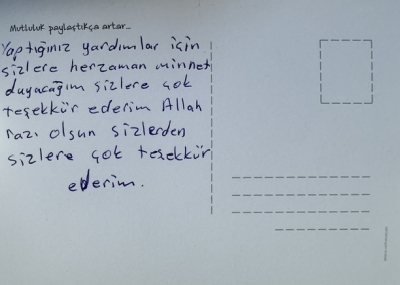 Mutluluk paylaştıkça artar...
Yaptığınız yardımlar için
sizlere herzaman minnet
duyacağım sizlere çok
teşekkür ederim Allah
razı olsun sizlerden
sizlere çok teşekkür
ederim.